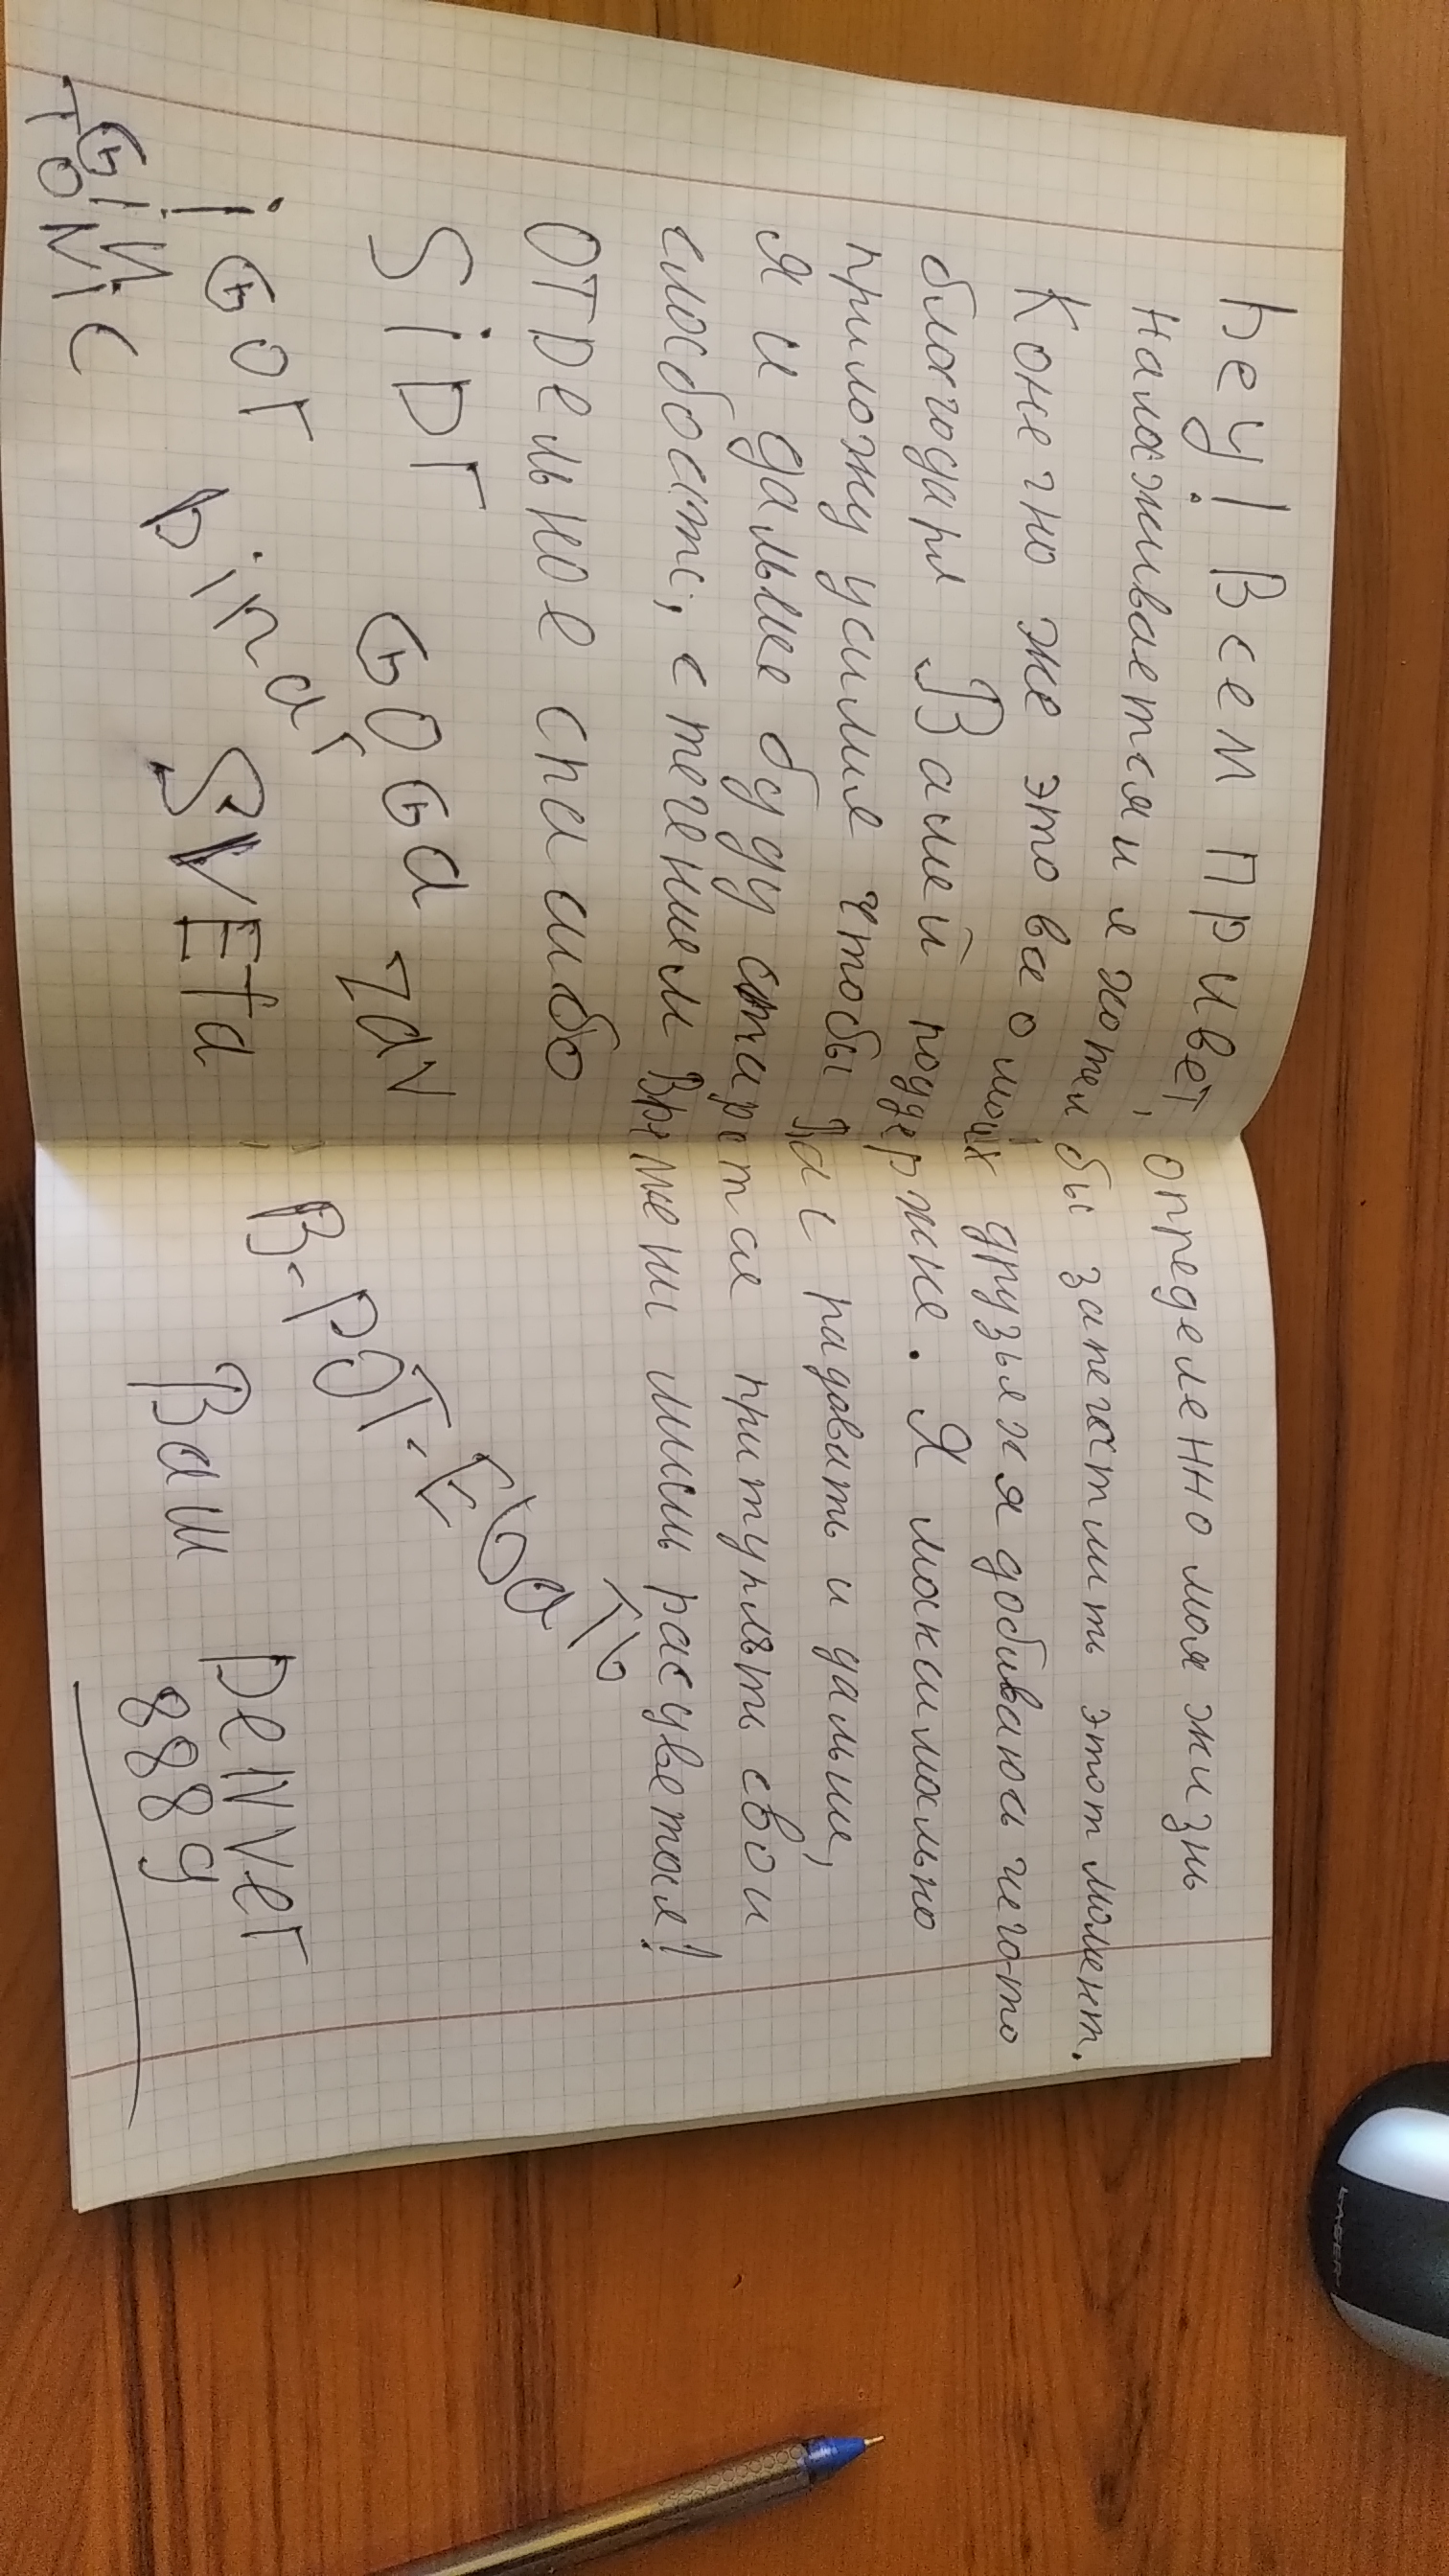 hey! Всем привет, определенно моя жизнь
налаживается и я хотел бы запечатлить этот момент.
Конечно же это все о моих друзьях я добиваюсь чего-то
благодаря Вашей поддержке. Я максимально
приложу усилия чтобы Вас радовать и дальше,
Я и дальше буду старатся притуплять свои
слобости, с течением Времени лишь расцветая!
ОТДельНОе спасибо
SiDr GOGa 7aN
iGor binar SVEta B-POT-EbOaTb
GiN TOMiC Ваш DeNVer
8889